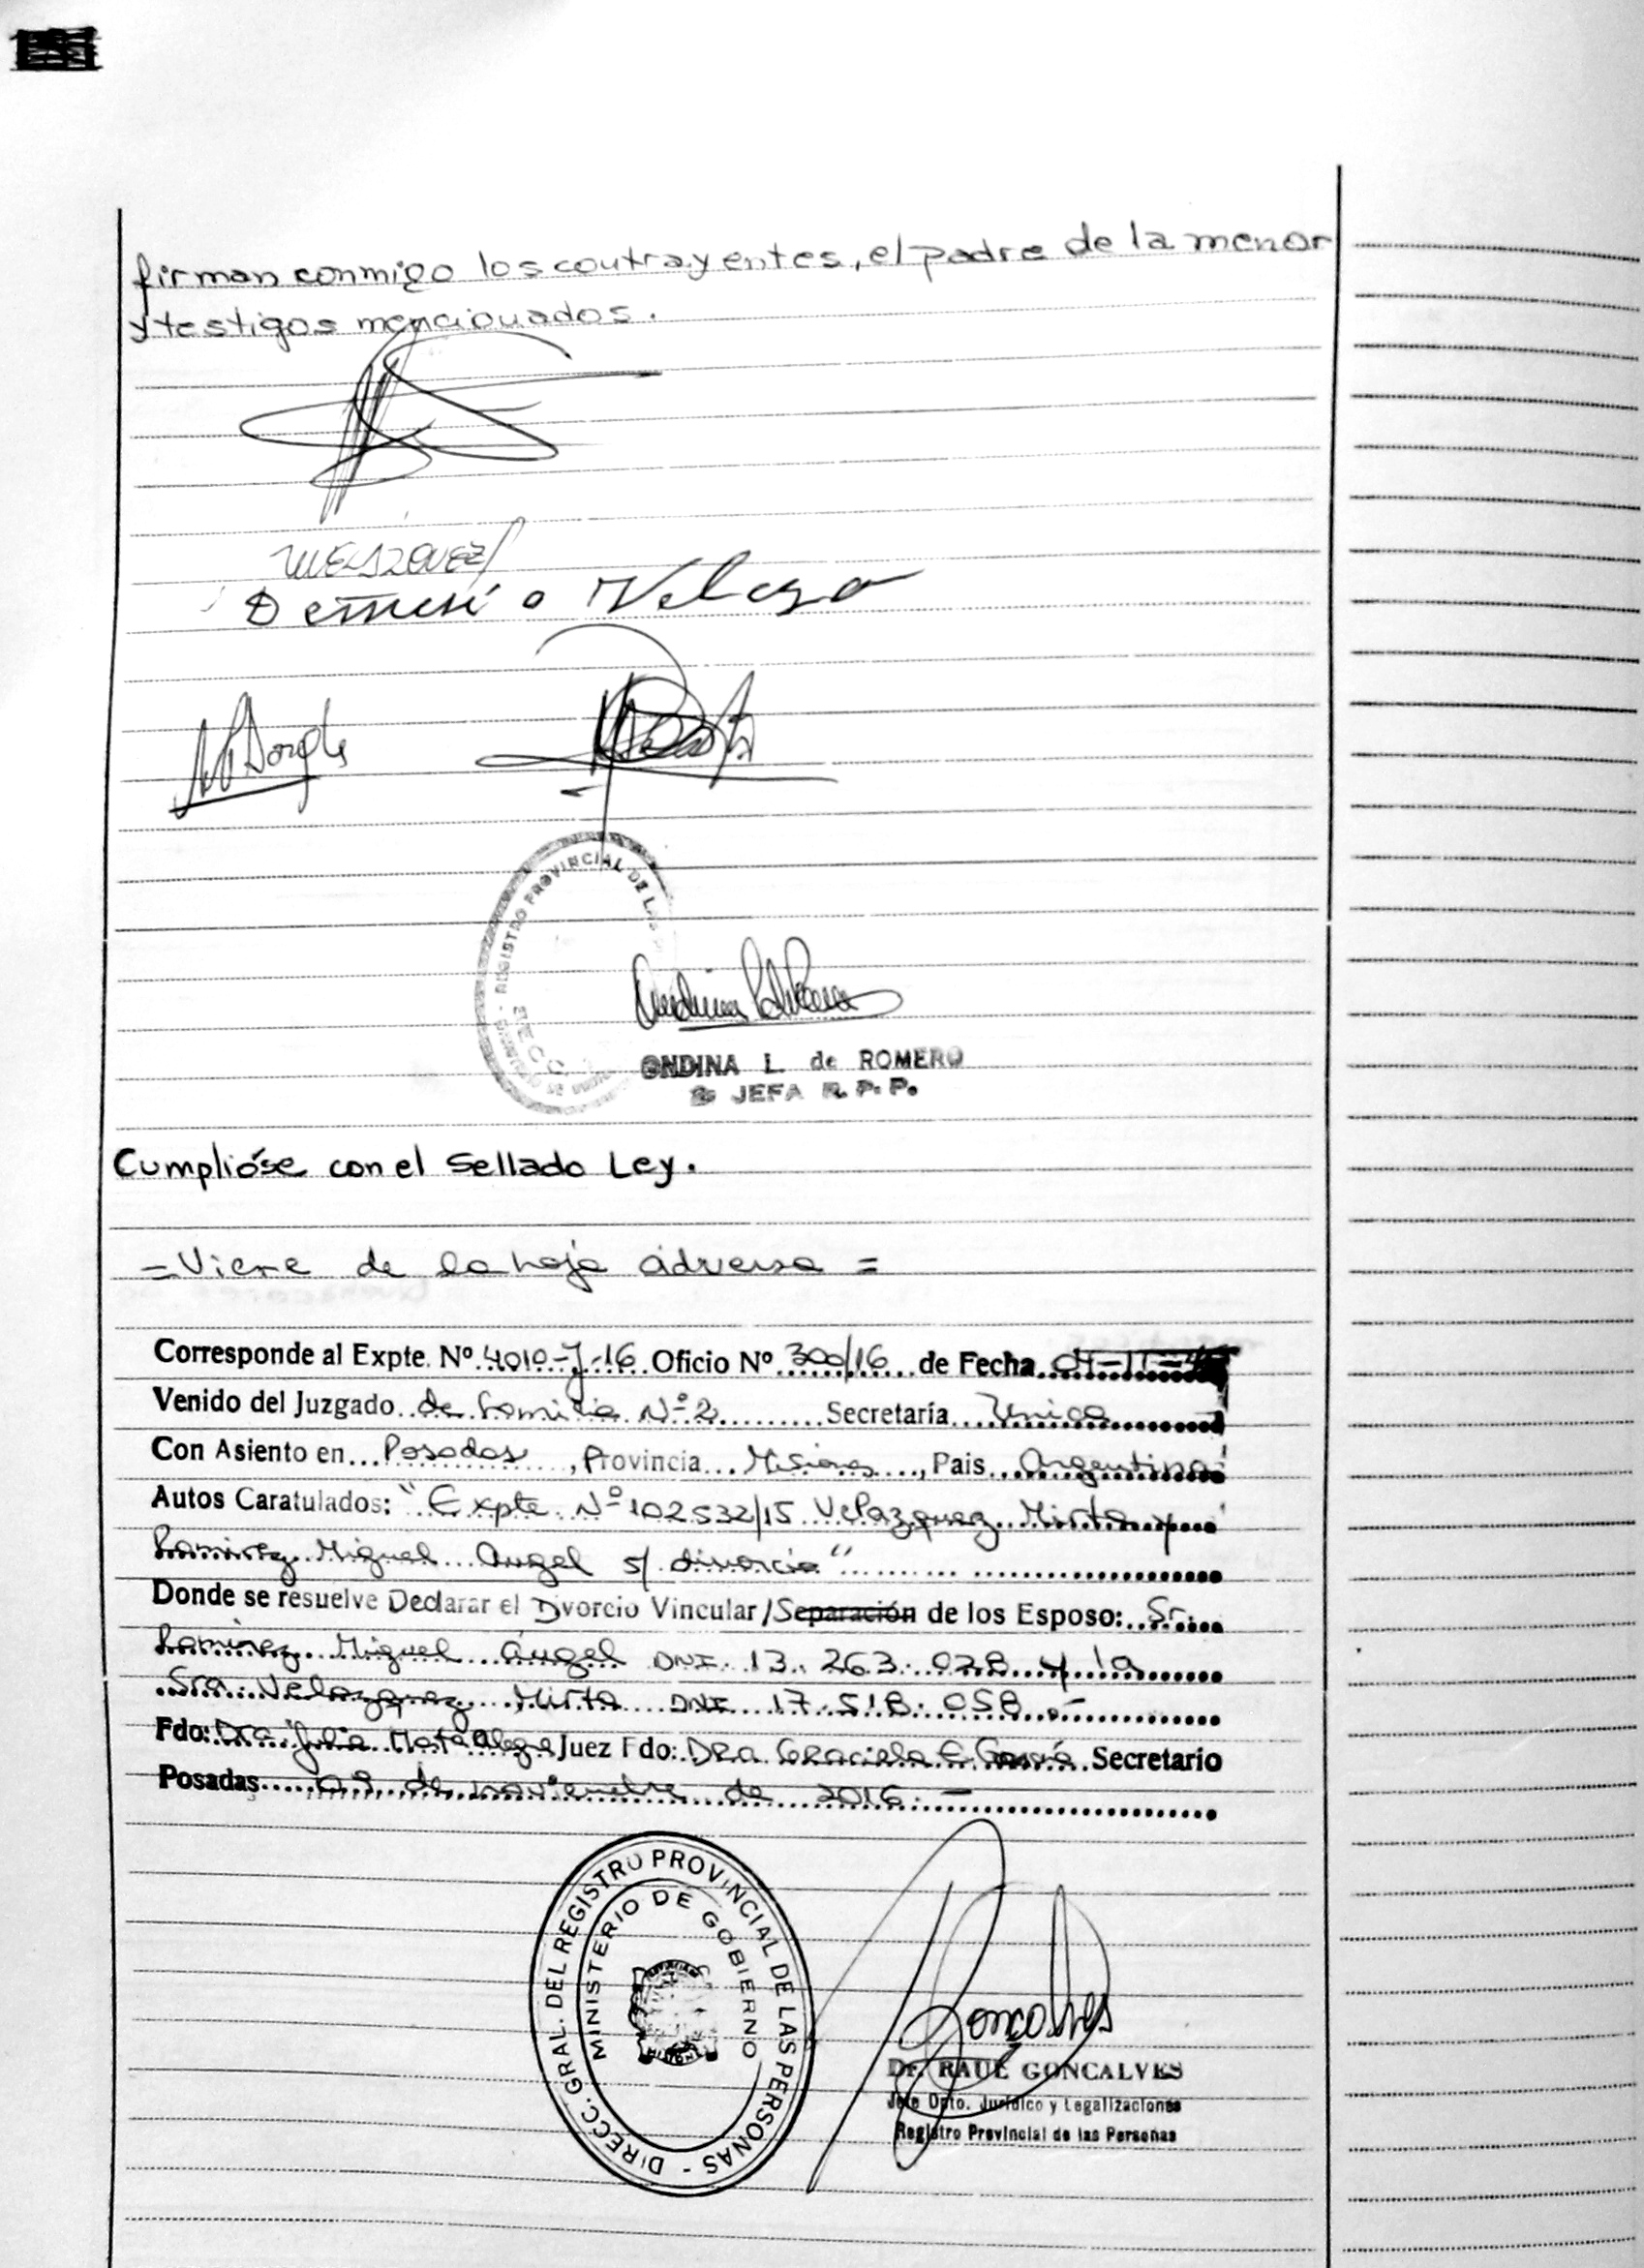 firman conmigo los contrayentes, el padre de la menor
y testigos mencionados.
REGISTRO PROVINCIAL DE LAS
ONDINA L. de ROMERO
JEFA R. P. P.
Cumplióse con el Sellado Ley.
= Viene de la hoja adversa =
Corresponde al Expte. Nº 4010-J-16 Oficio Nº 300/16 de Fecha
Venido del Juzgado de Familia Nº 2 Secretaría Unica
Con Asiento en Posadas, Provincia Misiones, Pais Argentina
Autos Caratulados: "Expte Nº 102532/15 Velazquez Mirta y
Ramirez Miguel Angel s/ divorcio"
Donde se resuelve Declarar el Divorcio Vincular/Separación de los Esposo: Sr.
Ramirez Miguel Ángel DNI 13.263.078 y la
Sra. Velazquez Mirta DNI 17.518.058.-
Fdo: Dra Julia Alegre Juez Fdo: DRA. Graciela E. Secretario
Posadas 09 de noviembre de 2016.-
DIRECC. GRAL. DEL REGISTRO PROVINCIAL DE LAS PERSONAS -
MINISTERIO DE GOBIERNO
MISIONES
Dr. RAUL GONCALVES
Jefe Dpto. Jurídico y Legalizaciones
Registro Provincial de las Personas